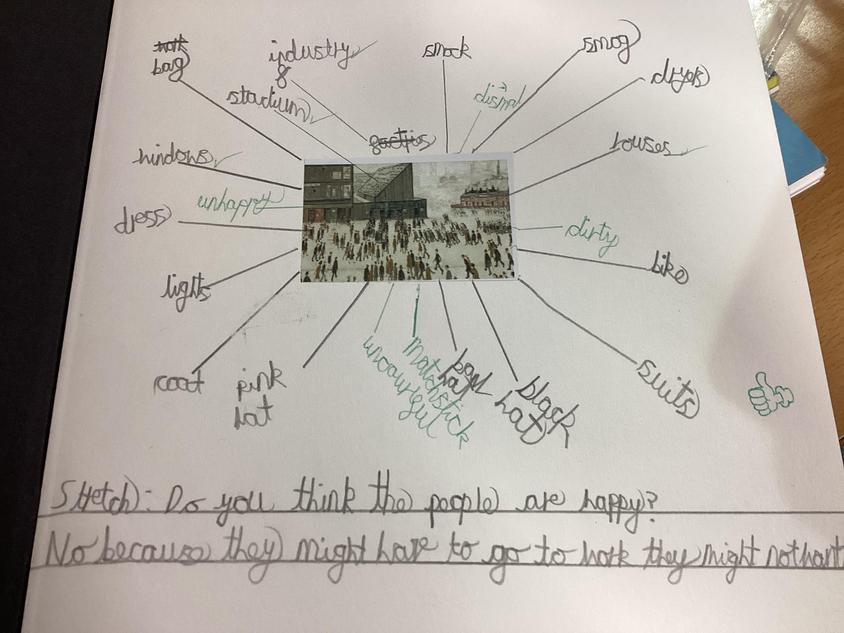 bag
industry
&
smock
smog
stadium
dismal
windows
houses
unhappy
dress
dirty
bike
lights
coat
pink
hat
matchstick
hat
black
hat
suits
Stretch: Do you think the people are happy?
No because they might have to go to work they might not want